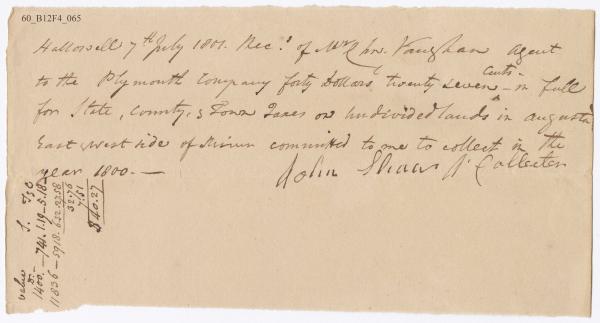 60_B12F4_065
Hallowell 7th July 1801. Rec.d of Mr Chs. Vaughan Agent
to the Plymouth Company forty Dollars, twenty seven cents - in full
for State, County, & Town Taxes on undivided lands in augusta
East & west side of River committed to me to collect in the
year 1800. —
John Collector
value S. T & C
1400 — 741. 1.19 - 5.18
11836 — 5918.
32.76
7.51
$40.27